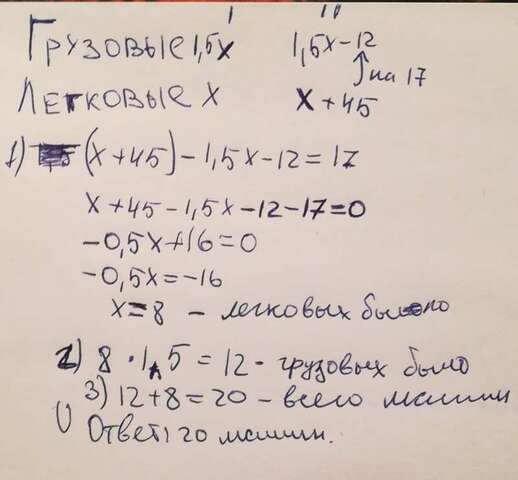 I II
Грузовые 1,5х 1,5х-12
на 17
Легковые х х+45
1) (х+45)-1,5х-12=17
х+45-1,5х-12-17=0
-0,5х+16=0
-0,5х=-16
х=8 - легковых было
2) 8·1,5=12- грузовых было
3) 12+8=20 - всего машин
Ответ: 20 машин.